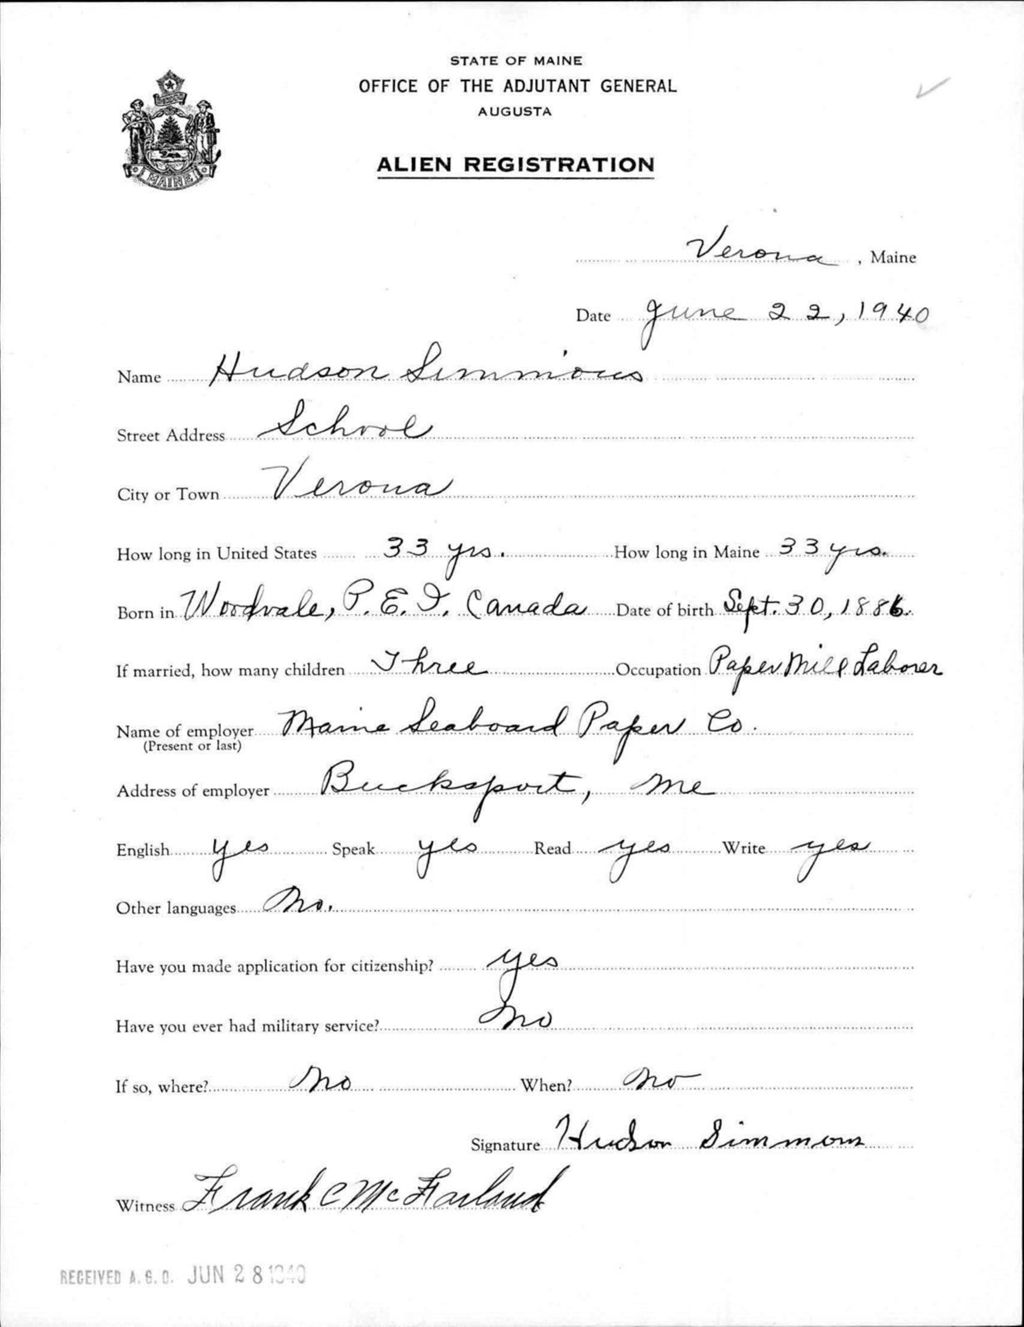 STATE OF MAINE
OFFICE OF THE ADJUTANT GENERAL
AUGUSTA
ALIEN REGISTRATION
MAINE
Verona, Maine
Date June 22, 1940
Name Hudson Simmons
Street Address School
City or Town Verona
How long in United States 33 yrs. How long in Maine 33 yrs.
Born in Woodvale, P.E.I. Canada Date of birth Sept. 30, 1886.
If married, how many children Three Occupation Paper Mill Laborer
Name of employer Maine Seaboard Paper Co.
(Present or last)
Address of employer Bucksport, Me
English yes Speak yes Read yes Write yes
Other languages No.
Have you made application for citizenship? yes
Have you ever had military service? No
If so, where? No When? No
Signature Hudson Simmons
Witness Frank C McFarland
RECEIVED A.G.O. JUN 28 1940